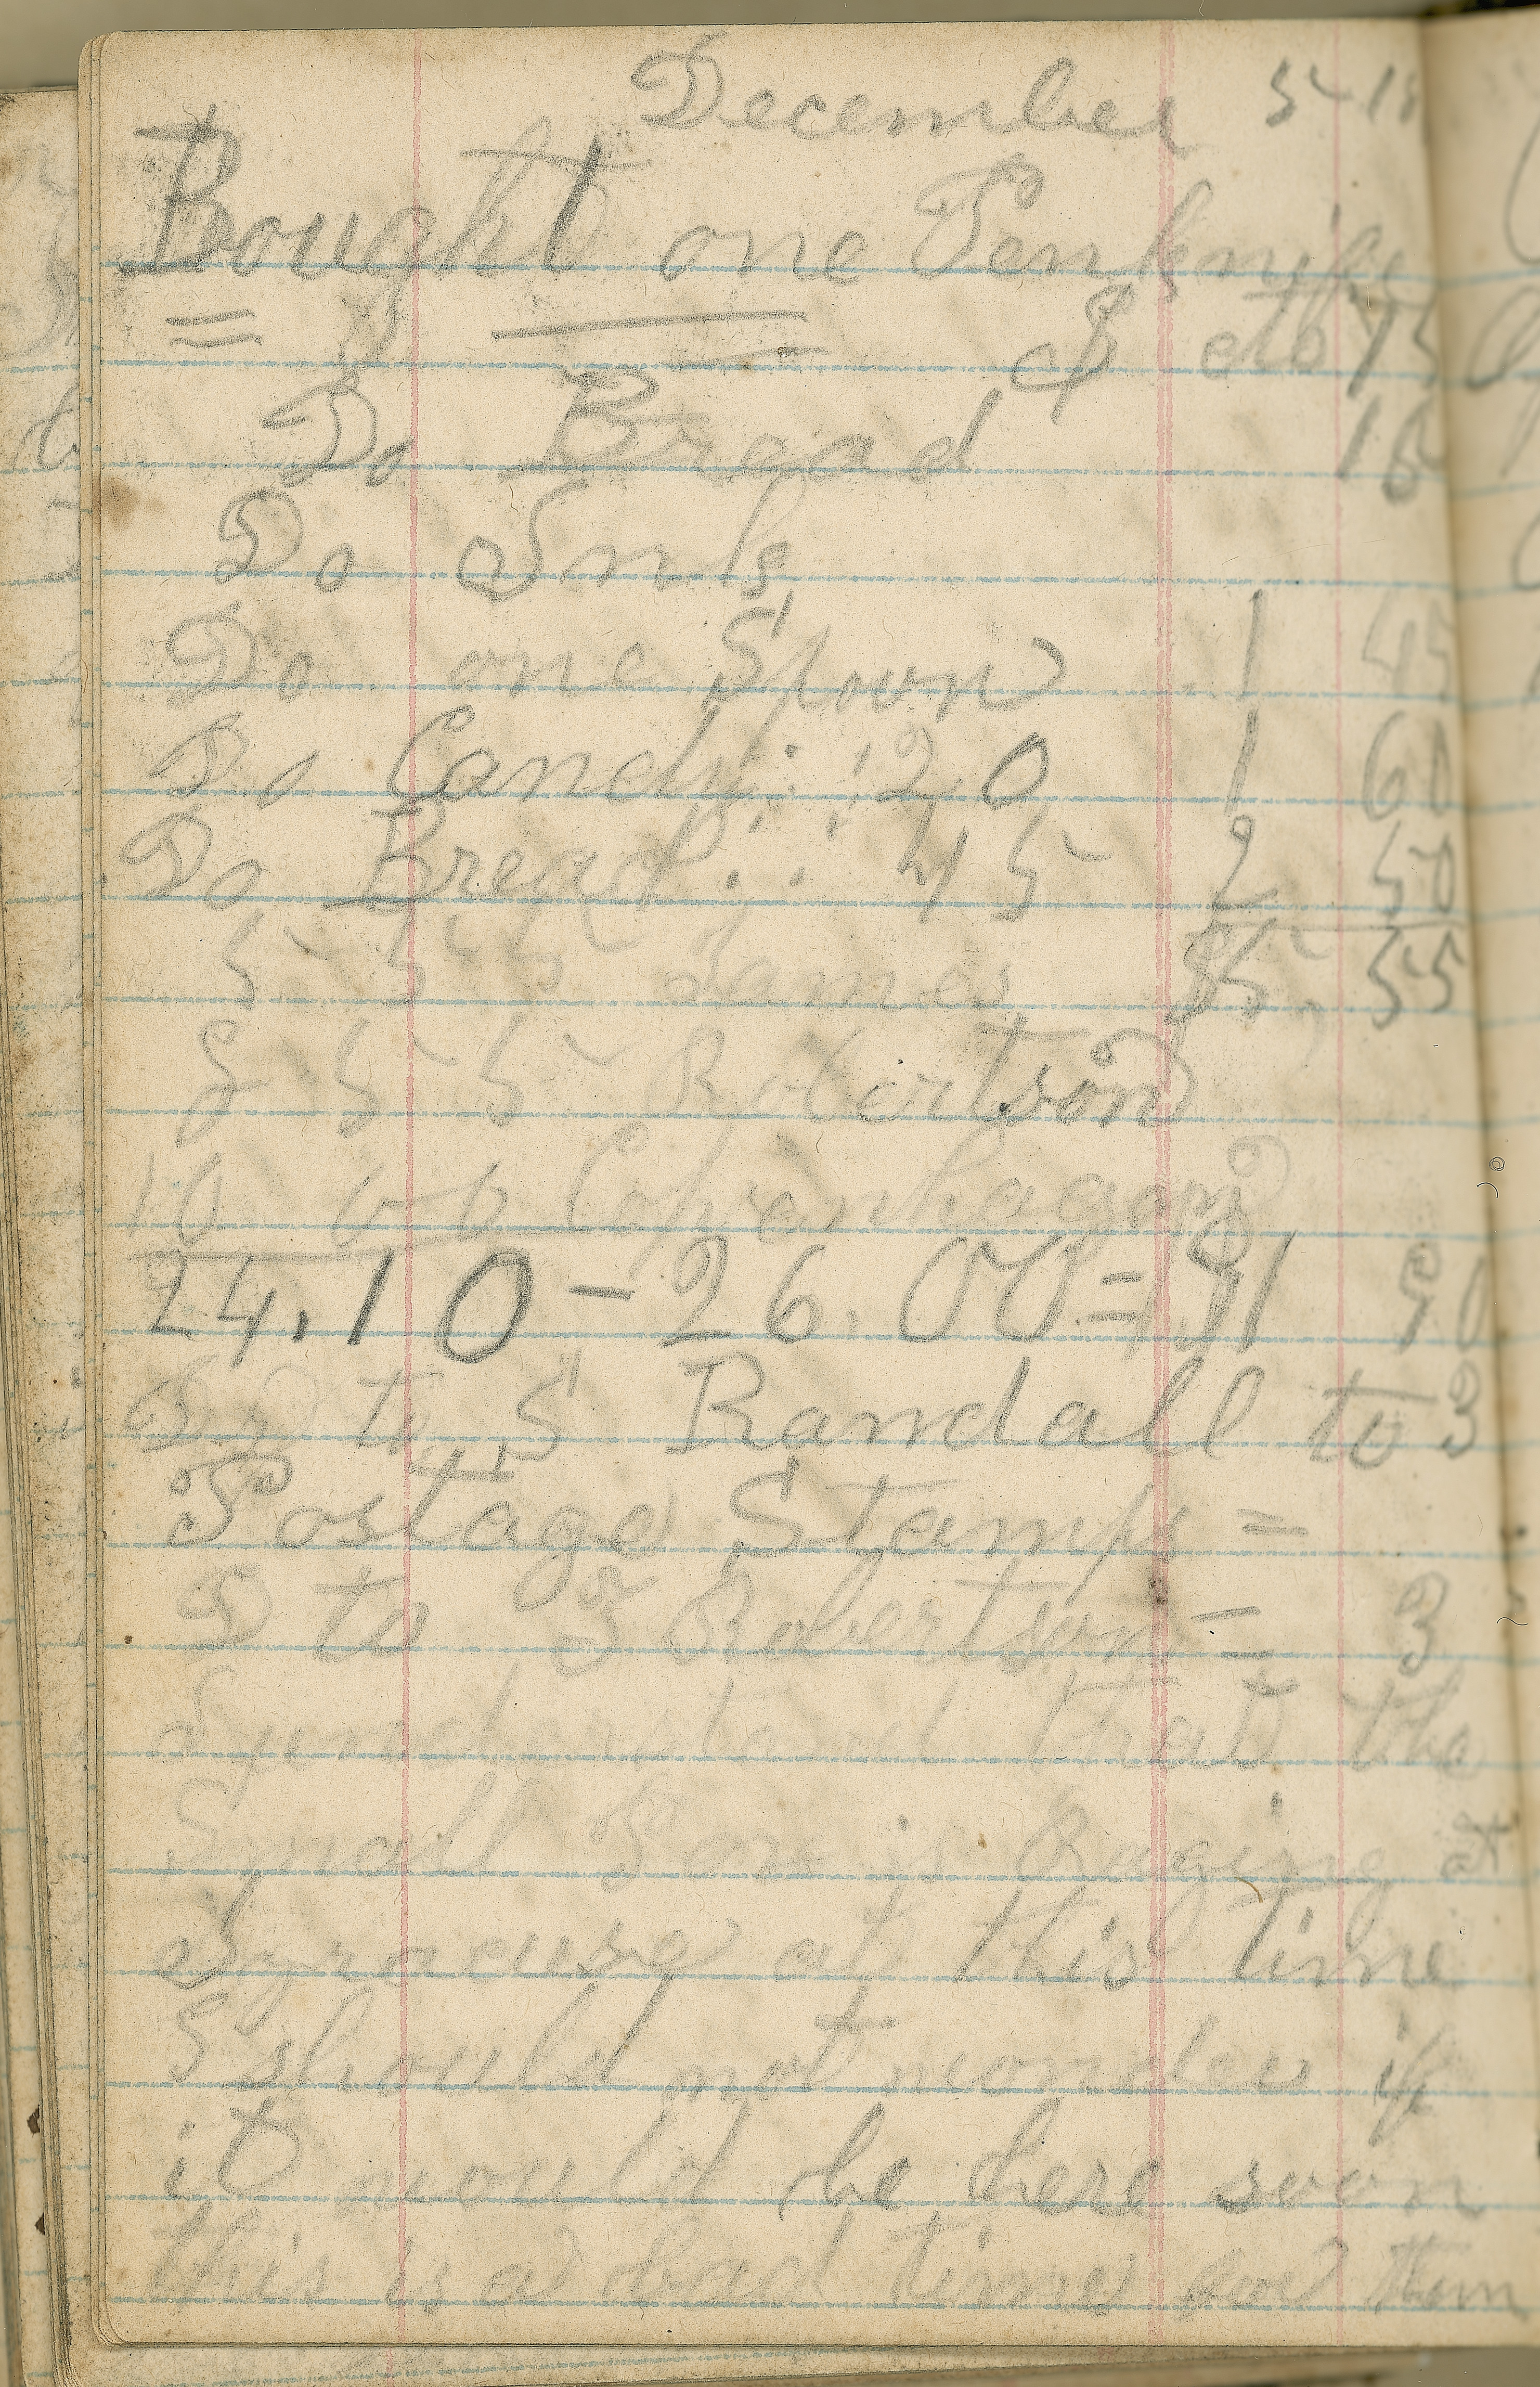 December 5 18
Bought one Penknife
= $ cts 75
Do Bread 15
Do Ink
Do one Spoon 1 45
Do Candy : : 20 1 60
Do Bread : : 45 2 50
5 5 5 James $5. 55
5 5 Robertson
10 Copenhagen
24.10 - 26.00 = 1 90
to S Randall to 3
Postage Stamps =
to S Robertson = 3
I understand that the
Small Pox is Raging at
Syracuse at this time
I should not wonder if
it would be here soon
this is a bad time for them